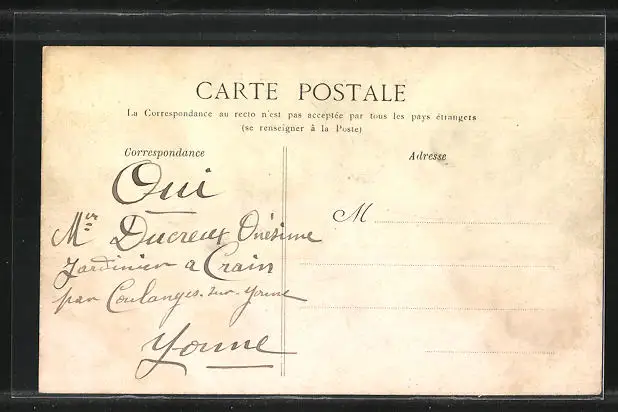 CARTE POSTALE
La Correspondance au recto n'est pas acceptée par tous les pays étrangers
(se renseigner à la Poste)
Correspondance
Adresse
Oui
M
Mr Ducreux Onésime
Jardinier a Crain
par Coulanges-sur-Yonne
Yonne